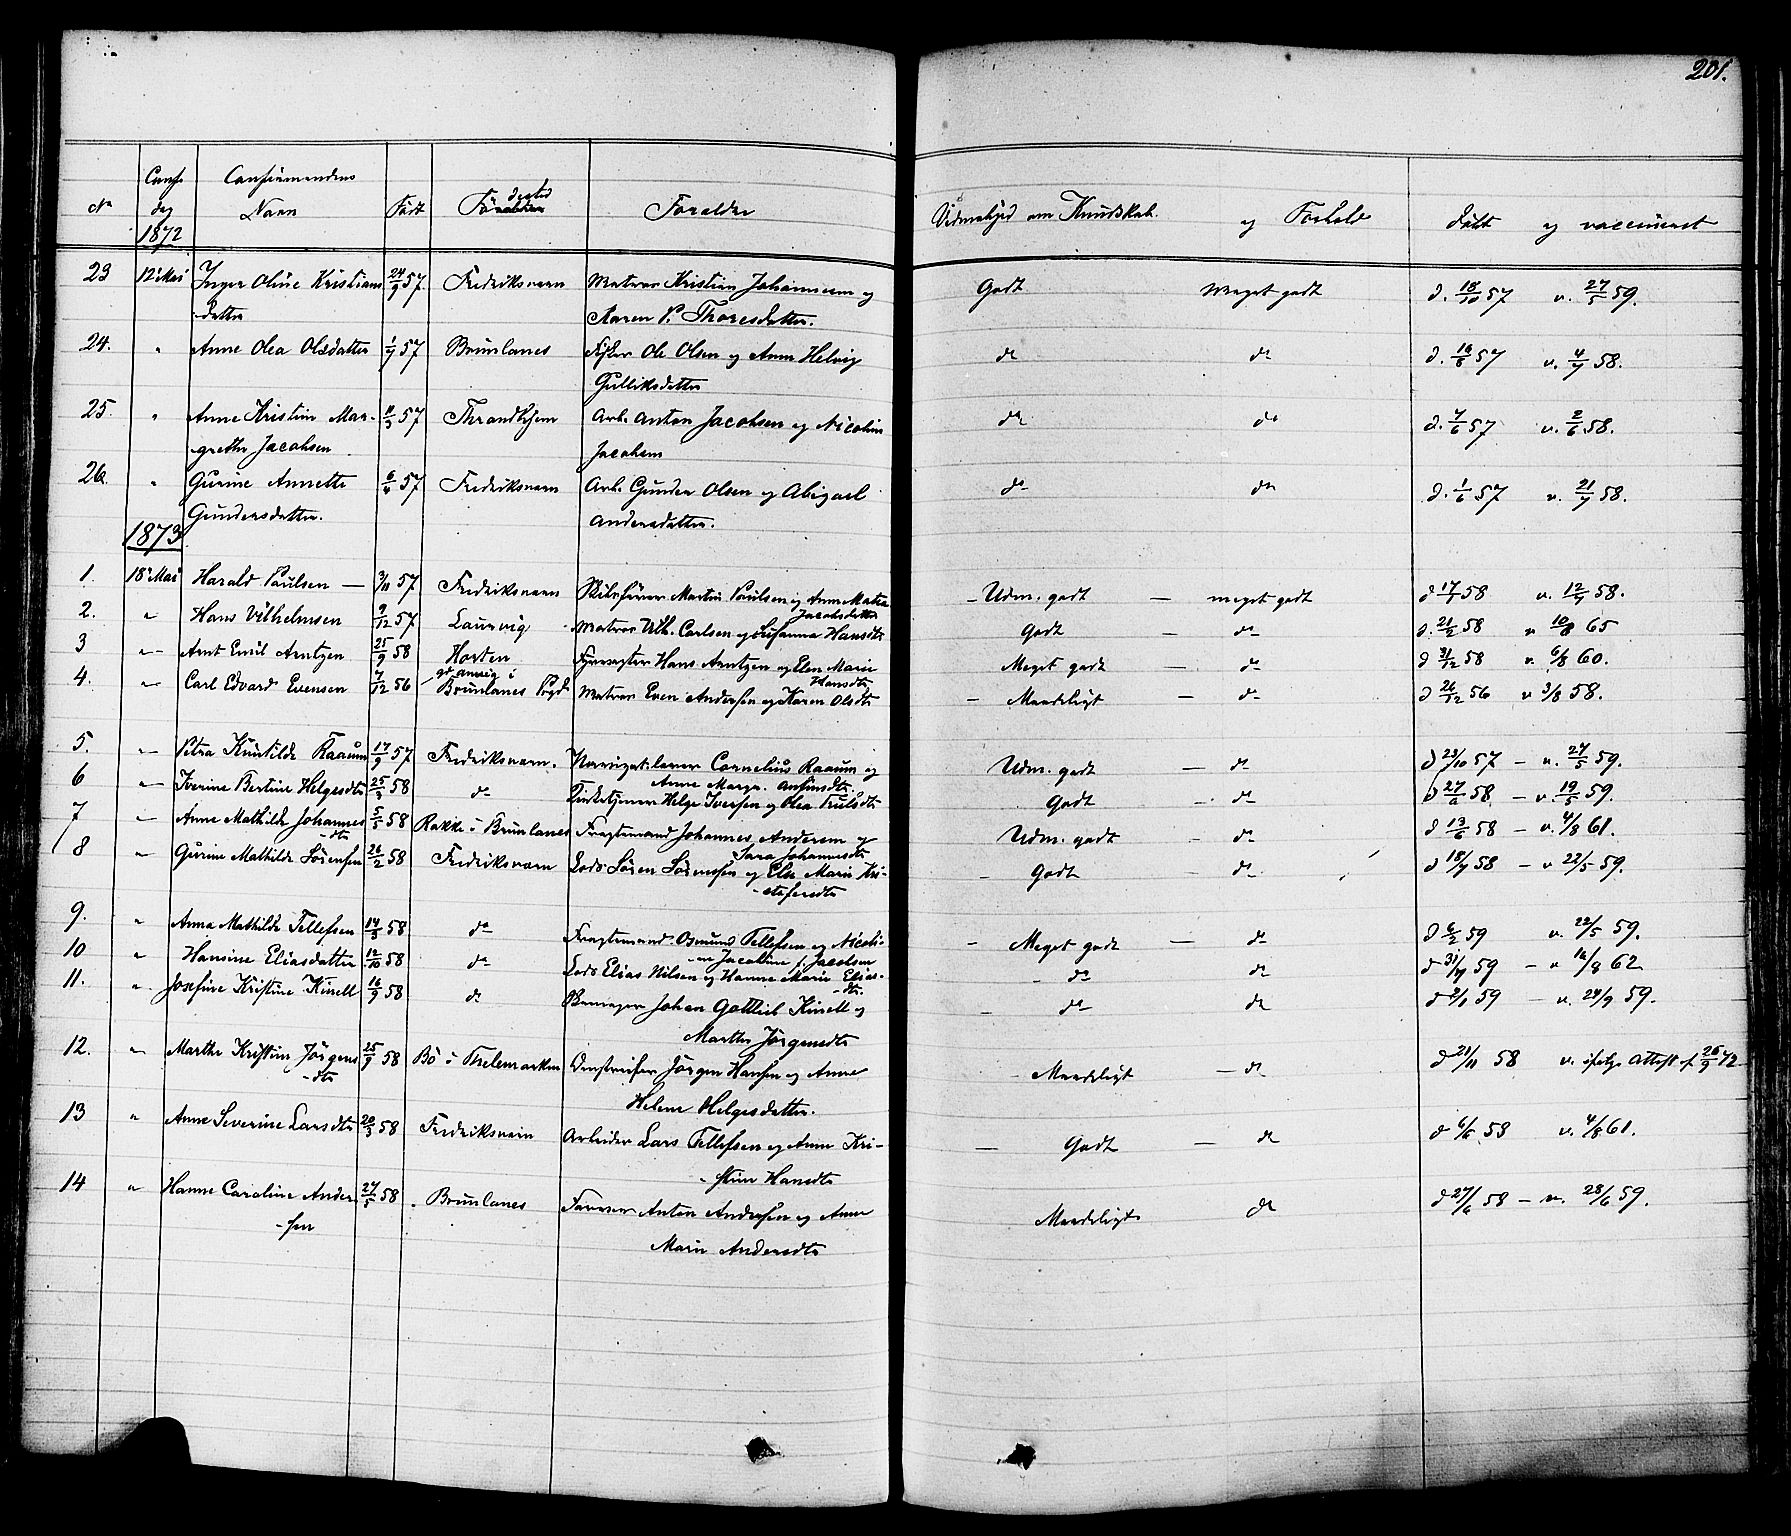 201.
No Conf. dag 1872 Confirmandens Navn Född Födested Forældre Vidnesbyrd om Kundskab og Forhold döbt og vaccineret
23 12 Mai Inger Oline Kristians- 24/9 57. Fredriksværn Matros Kristian Johannesen og Godt Meget godt d. 18/10 57 v. 27/5 59.
datter Karen P. Thoresdatter.
24. " Anne Olea Olsdatter 1/7 57 Brunlanes Fisker Ole Olsen og Anne Helvig do do d. 16/8 57 v. 4/7 58.
Gulliksdatter
25. " Anne Kristine Mar- 11/3 57 Throndhjem Arb. Anton Jacobsen og Nicoline do do d. 7/6 57 v. 2/6 58.
grethe Jacobsen Jacobsen
26. " Gurine Annette 6/4 57 Fredriksværn Arb. Gunder Olsen og Abigael do do d. 1/6 57 v. 21/7 58.
Gundersdatter. Andersdatter.
1873
1. 18 Mai Harald Paulsen — 3/11 57 Fredriksværn Skibsförer Martin Paulsen og Anne Matea - Udm. godt — meget godt d 17/1 58 v. 12/7 58.
Jacobsdatter
2. " Hans Vilhelmsen 9/12 57 Laurvig Matros Vilh. Carlsen og Susanna Hansdtr Godt — do d. 21/2 58 v 10/8 65
3 " Arnt Emil Arntzen 25/9 58 Horten Fyrvogter Hans Arntzen og Elen Marie Meget godt — do d 31/12 58 v. 6/8 60.
Hansdtr
4. " Carl Edvard Evensen 7/12 56 i Brunlanes Pgd Matros Even Andersen og Karen Olsdtr - Maadeligt — do d 26/12 56 v 3/8 58.
5. " Petra Kunilde Raaum 17/9 57 Fredriksværn. Navigatlærer Cornelius Raaum og Udm. godt — do d 23/10 57 — v. 27/5 59.
Anne Margr. Anfinsdtr
6 " Iverine Bertine Helgesdtr 25/3 58 do Kirketjener Helge Iversen og Olea Trulsdtr Godt — do d 27/6 58 — v. 19/5 59.
7 " Anne Mathilde Johannes- 5/5 58 Rakke i Brunlanes Fragtemand Johannes Andersen og Udm. godt — do d 13/6 58 — v. 4/8 61.
dtr Sara Johannesdtr
8 " Gurine Mathilde Sörensen 26/2 58 Fredriksværn Lods Sören Sörensen og Else Marie Kri- - Godt — do d 18/7 58 — v 22/5 59.
stofersdtr
9. " Anna Mathilde Tellefsen 14/8 58 do Fragtemand Osmund Tellefsen og Nicoli- - Meget godt — do d 6/2 59 v. 22/5 59.
ne Jacobine f. Jacobsen
10 " Hansine Eliasdatter 12/10 58 do Lods Elias Nilsen og Hanne Marie Elias- - do do d 31/7 59 — v 16/8 62
dtr.
11. " Josefine Kristine Kinell 16/9 58 do Johan Gottlieb Kinell og - do do d 2/1 59 — v. 24/9 59.
Marthe Jörgensdtr
12. " Marthe Kristine Jörgens 25/9 58 Bö i Thelemarken Jörgen Hansen og Anne - Maadeligt — do d 21/11 58 v. ifølge Attest f 26/9 72
-dtr Helene Helgesdatter.
13 " Anne Severine Larsdtr 20/3 58 Fredriksværn Arbeider Lars Tellefsen og Anne Kri- — Godt — do d 6/6 58 v. 4/8 61.
stine Hansdtr
14 " Hanne Caroline Ander- 27/5 58 Brunlanes Farver Anton Andersen og Anne Maadeligt do d 27/6 58 — v. 28/6 59.
-sen Marie Andersdtr